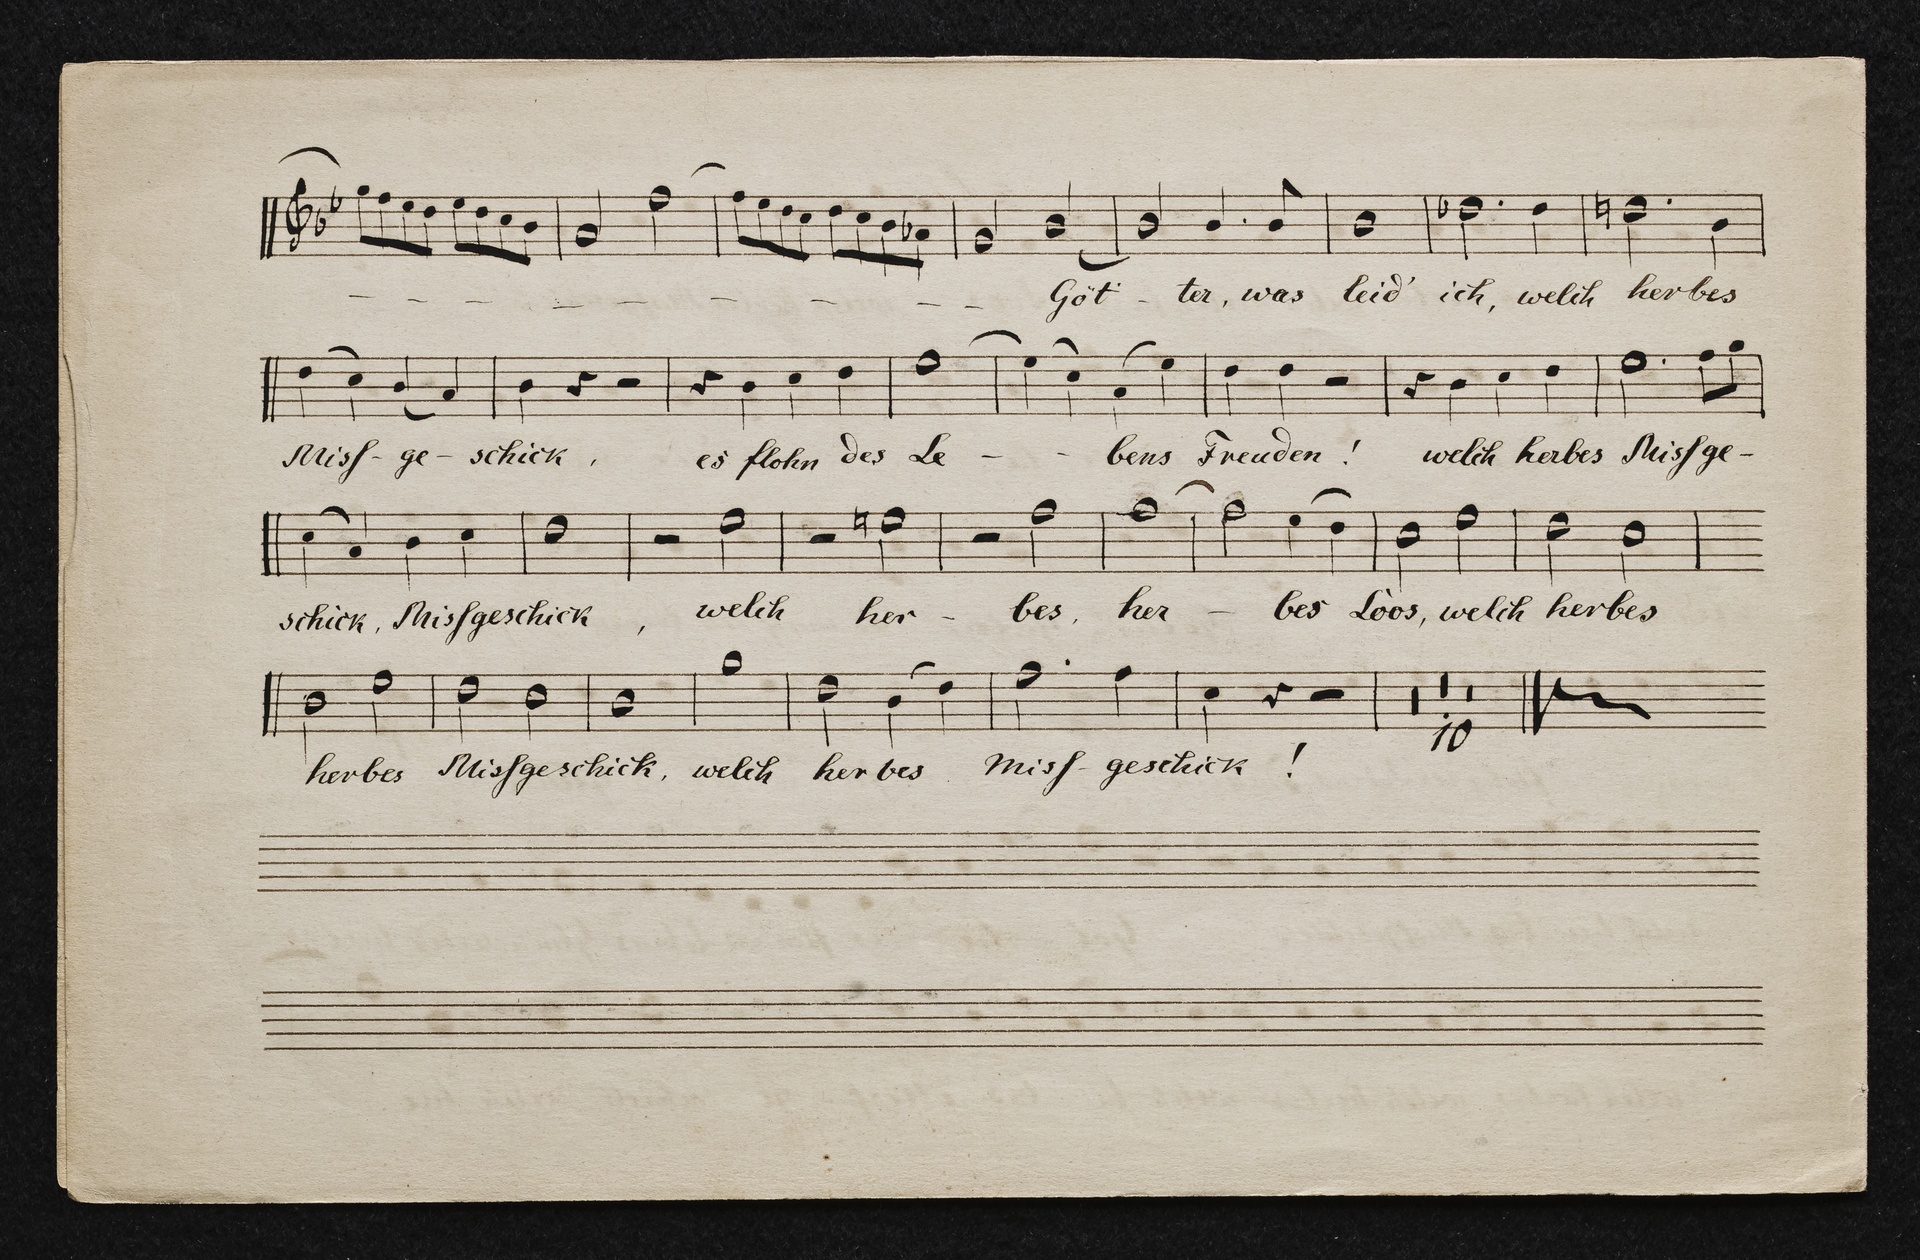 – – – – – – – – – Göt - ter, was leid' ich, welch herbes
Misſ- ge- schick, es flohn des Le - - bens Freuden! welch herbes Misſge-
schick, Misſgeschick, welch her - bes, her - bes Loos, welch herbes
10
herbes Misſgeschick, welch herbes Misſ- geschick!